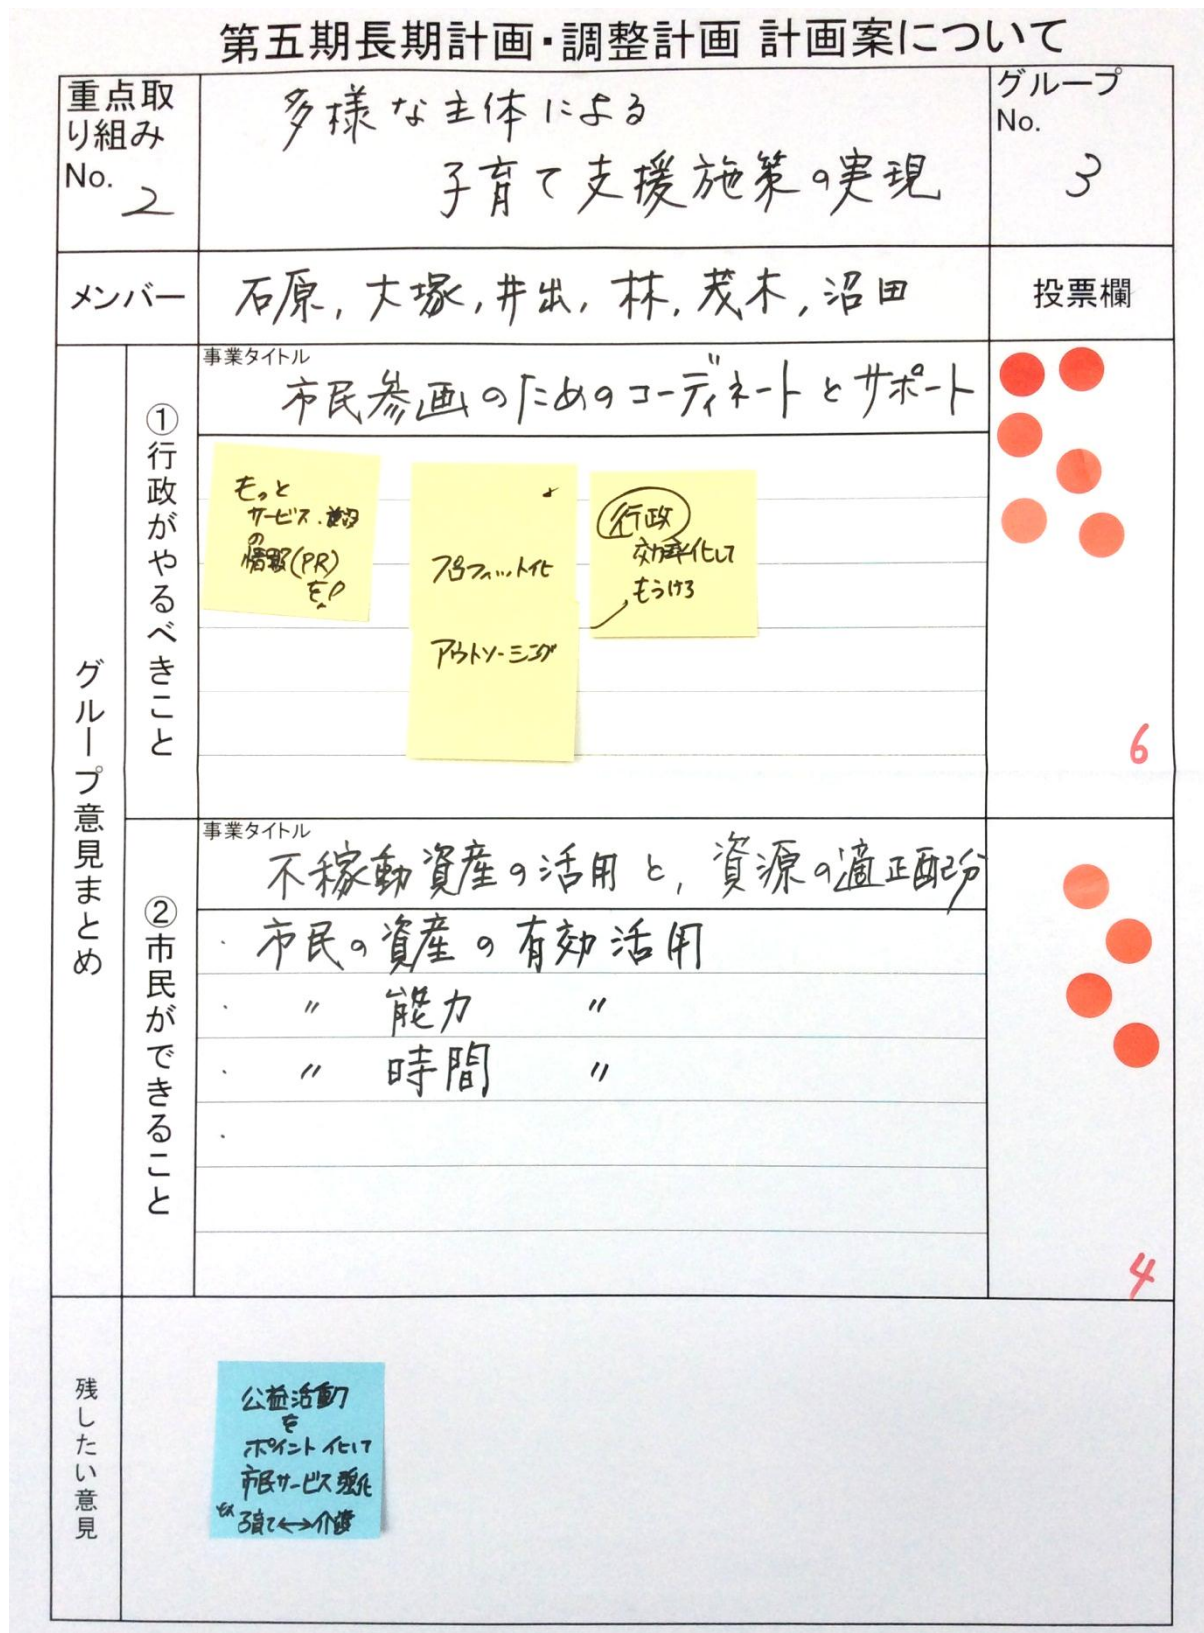 第五期長期計画・調整計画 計画案について
重点取
り組み
No. 2
多様な主体による
子育て支援施策の実現
グループ
No.
3
メンバー
石原, 大塚, 井出, 林, 茂木, 沼田
投票欄
グループ意見まとめ
①行政がやるべきこと
事業タイトル
市民参画のためのコーディネートとサポート
もっと
サービス・施設
の
情報(PR)
を!
プロフィット化
アウトソーシング
行政
効率化して
もうける
6
②市民ができること
事業タイトル
不稼動資産の活用と, 資源の適正配分
・ 市民の資産の有効活用
・ 〃 能力 〃
・ 〃 時間 〃
・
4
残したい意見
公益活動
を
ポイント化して
市民サービス強化
ex 子育て↔介護